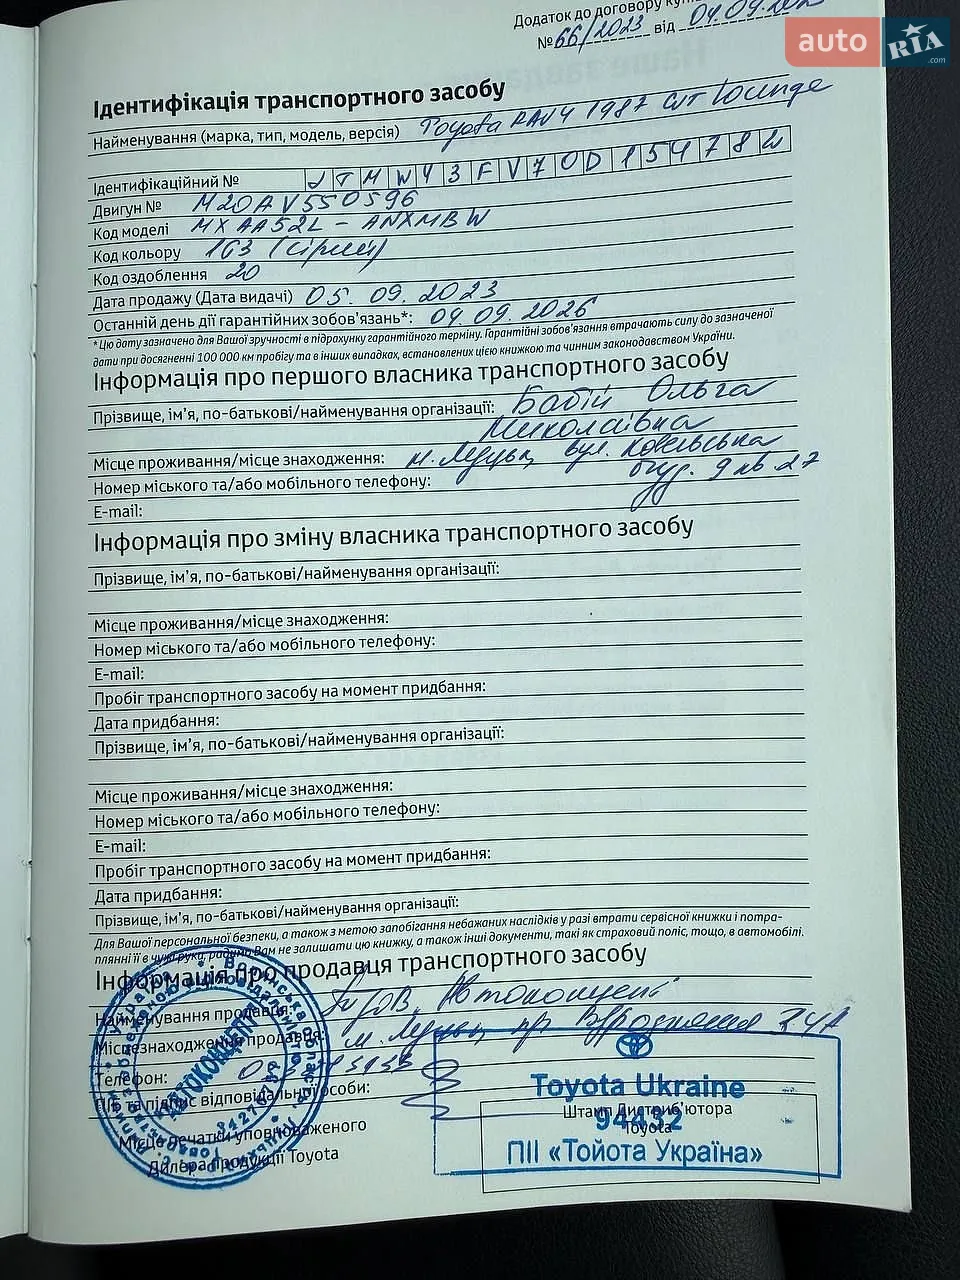 Додаток до договору
№66/2023 від 04.09.
auto RIA .com
Ідентифікація транспортного засобу
Найменування (марка, тип, модель, версія) Toyota RAV4 1987 CVT Lounge
Ідентифікаційний № JTMW43FV70D154782
Двигун № M20AV550596
Код моделі MXAA52L-ANXMBW
Код кольору 1G3 (сірий)
Код оздоблення 20
Дата продажу (Дата видачі) 05.09.2023
Останній день дії гарантійних зобов'язань*: 04.09.2026
* Цю дату зазначено для Вашої зручності в підрахунку гарантійного терміну. Гарантійні зобов'язання втрачають силу до зазначеної
дати при досягненні 100 000 км пробігу та в інших випадках, встановлених цією книжкою та чинним законодавством України.
Інформація про першого власника транспортного засобу
Прізвище, ім'я, по-батькові/найменування організації: Бабій Ольга
Миколаївна
Місце проживання/місце знаходження: м. Луцьк, вул. Ковельська
Номер міського та/або мобільного телефону: буд. 9 кв 27
E-mail:
Інформація про зміну власника транспортного засобу
Прізвище, ім'я, по-батькові/найменування організації:
Місце проживання/місце знаходження:
Номер міського та/або мобільного телефону:
E-mail:
Пробіг транспортного засобу на момент придбання:
Дата придбання:
Прізвище, ім'я, по-батькові/найменування організації:
Місце проживання/місце знаходження:
Номер міського та/або мобільного телефону:
E-mail:
Пробіг транспортного засобу на момент придбання:
Дата придбання:
Прізвище, ім'я, по-батькові/найменування організації:
Для Вашої персональної безпеки, а також з метою запобігання небажаних наслідків у разі втрати сервісної книжки і потра-
плянні її в чужі руки, радимо Вам не залишати цю книжку, а також інші документи, такі як страховий поліс, тощо, в автомобілі.
Інформація про продавця транспортного засобу
Найменування продавця: Автоконцепт
Місцезнаходження продавця: м. Луцьк, пр Відродження 24А
Телефон:
ПІБ та підпис відповідальної особи:
Toyota Ukraine
Штамп Дистриб'ютора
94432
Toyota
ПІІ «Тойота Україна»
Місце печатки уповноваженого
Дилера продукції Toyota
АВТОКОНЦЕПТ